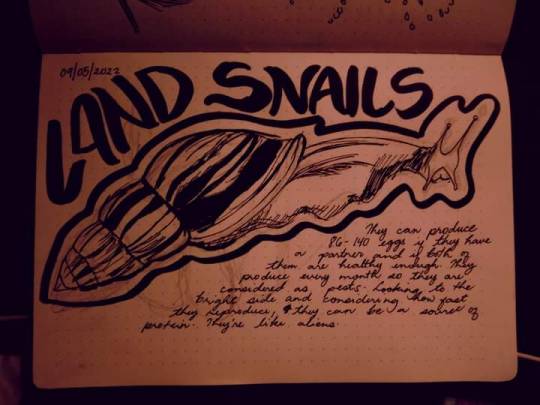 09/05/2022
LAND SNAILS
They can produce
86-140 eggs if they have
a partner and if both of
them are healthy enough. They
produce every month so they are
considered as pests. Looking to the
bright side and considering how fast
they reproduce, they can be a source of
protein. They're like aliens.